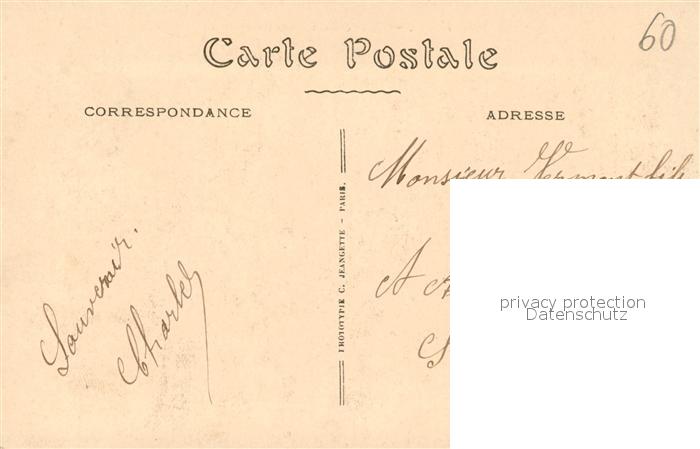 60
Carte Postale
CORRESPONDANCE
ADRESSE
Monsieur Vermont fils
A
Souvenir.
Charles
PHOTOTYPIE C. JEANGETTE – PARIS.
privacy protection
Datenschutz